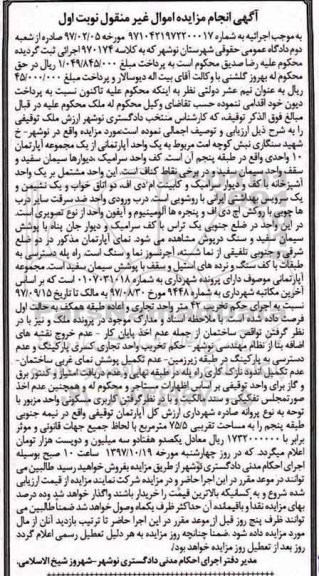 آگهی انجام مزایده اموال غیر منقول نوبت اول
به موجب اجرائیه به شماره ۹۷۱۰۴۲۱۹۷۲۲۰۰۰۱۷ مورخه ۹۷/۰۲/۰۵ صادره از شعبه
دوم دادگاه عمومی حقوقی شهرستان نوشهر که به کلاسه ۹۷۰۱۷۴ اجرائی ثبت گردیده
محکوم علیه رضا صدیق محکوم است به پرداخت مبلغ ۱/۰۴۹/۸۴۵/۰۰۰ ریال در حق
محکوم له بهروز گلشنی با وکالت آقای بیت اله دیوسالار و پرداخت مبلغ ۴۵/۰۰۰/۰۰۰
ریال به عنوان نیم عشر دولتی نظر به اینکه محکوم علیه تاکنون نسبت به پرداخت
دیون خود اقدامی ننموده حسب تقاضای وکیل محکوم له ملک محکوم علیه در قبال
مبالغ فوق الذکر توقیف، که کارشناس منتخب دادگستری نوشهر ارزش ملک توقیفی
را به شرح ذیل ارزیابی و توصیف اجمالی نموده است.مورد مزایده واقع در نوشهر- خ
شهید سنگاری نبش کوچه امت مربوط به یک واحد آپارتمانی از یک مجموعه آپارتمان
۱۰ واحدی واقع در طبقه پنجم آن است. کف واحد سرامیک ،دیوارها سیمان سفید و
سقف واحد سیمان سفید و در برخی نقاط کناف است. این واحد مشتمل بر یک واحد
آشپزخانه با کف و دیوار سرامیک و کابینت ام.دی اف، دو اتاق خواب و یک نشیمن و
یک سرویس بهداشتی ایرانی با روشویی است. درب ورودی واحد ضد سرقت سایر درب
ها چوبی با روکش اچ.دی اف و پنجره ها آلومینیوم و آیفون واحد از نوع تصویری است.
در این واحد در ضلع جنوبی یک تراس با کف سرامیک و دیوار جان پناه با پوشش
سیمان سفید و سنگ درپوش مشاهده می شود. نمای آپارتمان مذکور در دو ضلع
شرقی و جنوبی تلفیقی از نما شسته، آجرنسوز نما و سنگ است. راه پله دسترسی به
طبقات با کف سنگ و نرده های استیل و سقف با پوشش سیمان سفید است. مجموعه
آپارتمانی موصوف دارای پرونده شهرداری به شماره ۰۱۰۷۰۳۱۰۱۸ است که بر اساس
آخرین مکاتبه شهرداری به شماره ۹۴۴۸ مورخ ۹۷/۰۸/۳۰ به مالک تا تاریخ ۹۷/۰۹/۱۵
نسبت به اجرای حکم تخریب ۴۲ متر واحد تجاری و اضافه بنای همکف به حالت اول
فرصت داده شده است. با ملاحظه اسناد و مدارک موجود در پرونده ملک و نیز با در
نظر گرفتن نواقص ساختمان از جمله عدم اخذ پایان کار - عدم خروج نقشه های
اضافه بنا از نظام مهندسی نوشهر- حکم تخریب واحد تجاری کسری پارکینگ و عدم
دسترسی به پارکینگ در طبقه زیرزمین- عدم تکمیل پوشش نمای غربی ساختمان-
عدم تکمیل اندود نازک کاری راه پله در طبقه نهایی و عدم دریافت امتیاز و کنتور برق
و گاز برای واحد توقیفی بر اساس اظهارات مستاجر و محکوم له و همچنین عدم اخذ
صورتمجلس تفکیکی و سند مالکیت و با در نظر گرفتن کاربری مسکونی واحد مزبور با
توجه به نوع پروانه صادره شهرداری ارزش کل آپارتمان توقیفی واقع در نیمه جنوبی
طبقه پنجم را به مساحت تقریبی ۷۵/۵ مترمربع با لحاظ جمیع جهات قانونی و موثر
برابر با ۱۷۳۲۰۰۰۰۰۰ ریال معادل یکصدو هفتادو سه میلیون و دویست هزار تومان
اعلام میگردد که در روز چهارشنبه مورخه ۱۳۹۷/۱۰/۱۹ ساعت ۱۰ صبح بوسیله
اجرای احکام مدنی دادگستری نوشهر از طریق مزایده بفروش خواهید رسید طالبین می
توانند در موعد مقرر در این اجرا حاضر و در مزایده شرکت نمایند مزایده از قیمت ارزیابی
شده شروع و به کسانیکه بالاترین قیمت را خریدار باشند واگذار خواهد شد وده درصد
بهای مزایده نقدا و باقیمانده آن حداکثر ظرف یکماه وصول خواهد شد ضمنا طالبین می
توانند ظرف پنج روز قبل از موعد مقرر در این اجرا حاضر تا ترتیب بازدید آنان از مال
مورد مزایده داده شود. ضمنا چنانچه روز مزایده به هر دلیل تعطیل رسمی اعلام گردد
روز بعد از تعطیل روز مزایده خواهد بود./
مدیر دفتر اجرای احکام مدنی دادگستری نوشهر -شهروز شیخ الاسلامی.